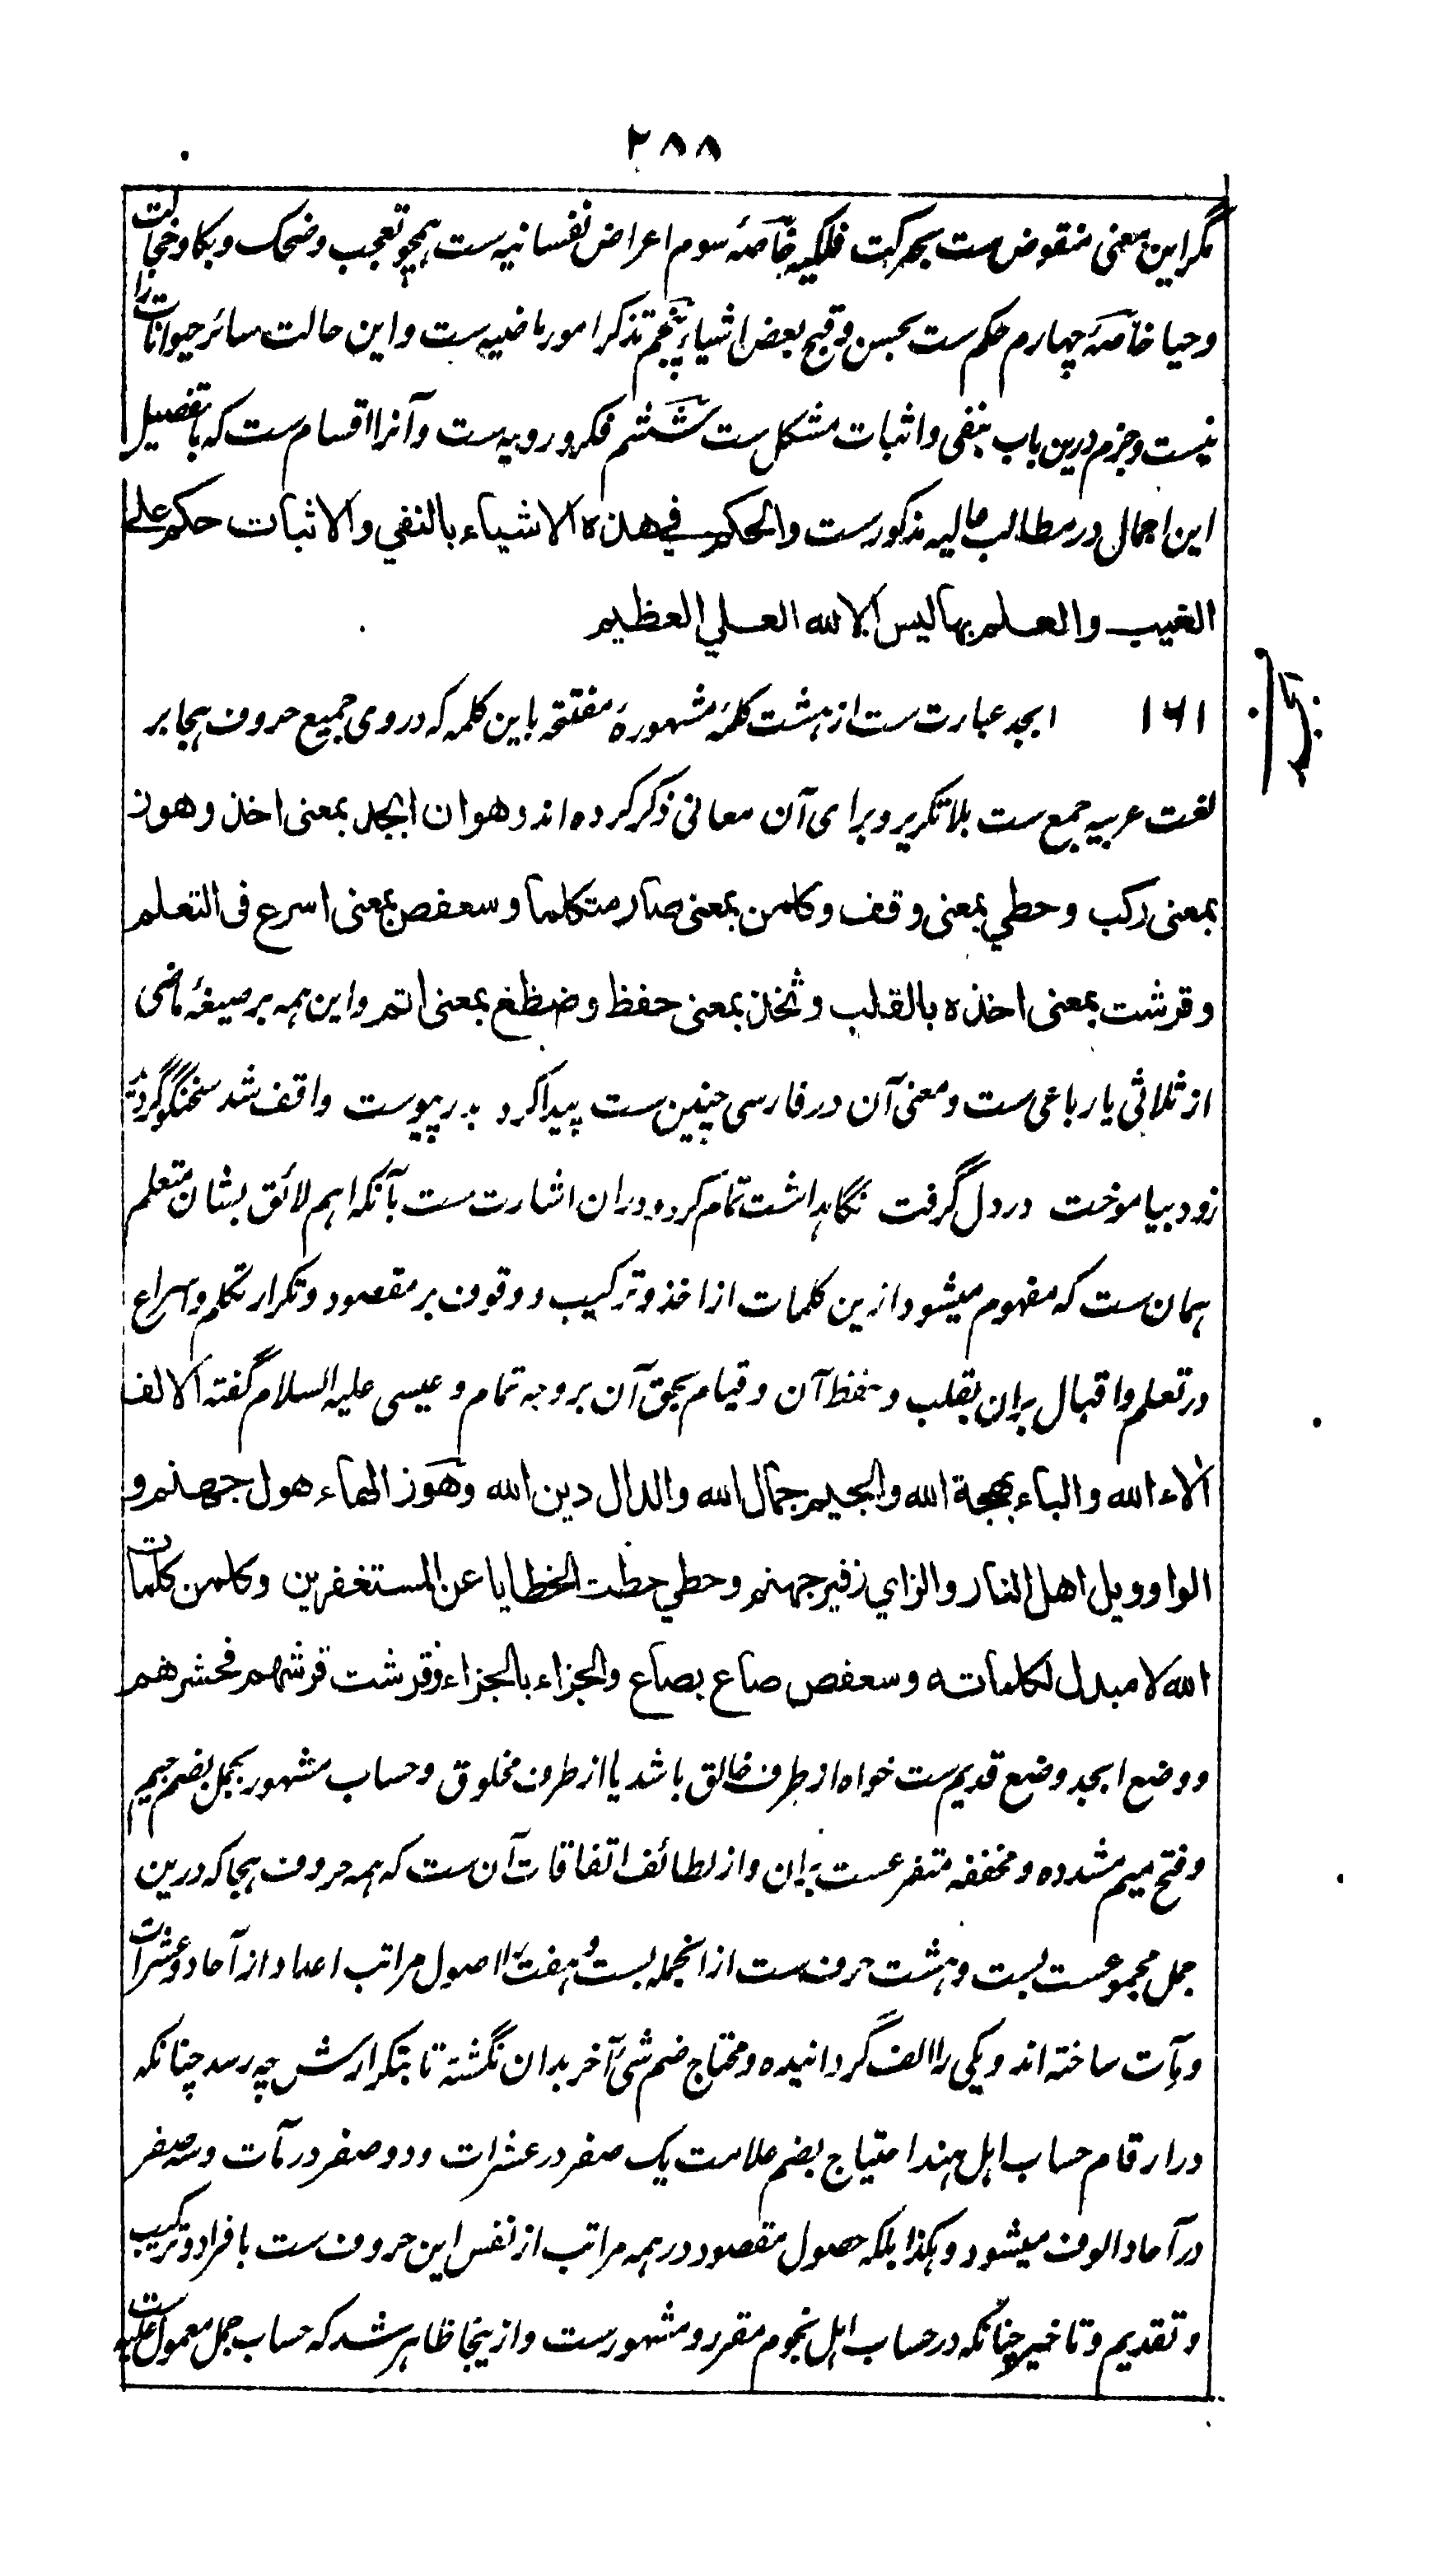 ۲۸۸
مگر این معنی منقوض ست بحرکت فلکیه خاصهٔ سوم اعراض نفسانیه ست همچو تعجب وضحک و بکا و خجالت
وحیا خاصهٔ چهارم حکم ست بحسن و قبح بعض اشیا پنجم تذکر امور ماضیه ست و این حالت سائر حیوانات را
نیست و جزم درین باب بنفی و اثبات مشکل ست ششم فکر و رویه ست و آنرا اقسام ست که با تفصیل
این اجمال در مطالب عالیه مذکور ست والحکم في هذه الاشیاء بالنفي والاثبات حکم علی
الغیب والعلم بها لیس الا لله العلي العظیم
۱۶۱ ابجد عبارت ست از هشت کلمهٔ مشهورهٔ مفتتحه باین کلمه که در وی جمیع حروف هجا بر
لغت عربیه جمع ست بلا تکریر و برای آن معانی ذکر کرده اند وهو ان ابجد بمعنی اخذ وهوز
بمعنی رکب وحطي بمعنی وقف وکلمن بمعنی صار متکلما وسعفص بمعنی اسرع فی التعلم
وقرشت بمعنی اخذه بالقلب وثخذ بمعنی حفظ وضظغ بمعنی اتم و این همه بر صیغهٔ ماضی
از ثلاثی یا رباعی ست و معنی آن در فارسی چنین ست پیدا کرد در پیوست واقف شد سخنگو گردید
زود بیاموخت در دل گرفت نگاهداشت تمام کرد و دران اشارت ست بآنکه اهم لائق بشان متعلم
همان ست که مفهوم میشود ازین کلمات از اخذ و ترکیب و وقوف بر مقصود و تکرار تکلم و اسراع
در تعلم و اقبال بران بقلب و حفظ آن و قیام بحق آن بر وجه تمام و عیسی علیه السلام گفته الالف
آلاء الله والباء بهجة الله والجیم جمال الله والدال دین الله وهَوَز الهاء هول جهنم و
الواو ویل اهل النار والزاي زفیر جهنم وحطي حطت الخطایا عن المستغفرین وکلمن کلمات
الله لا مبدل لکلماته وسعفص صاع بصاع والجزاء بالجزاء وقرشت قرشهم فحشرهم
و وضع ابجد وضع قدیم ست خواه از طرف خالق باشد یا از طرف مخلوق و حساب مشهور بجمل بضم جیم
وفتح میم مشدده و مخففه متفرعست بران و از لطائف اتفاقات آن ست که همه حروف هجا که درین
جمل مجموعست بست و هشت حرف ست ازانجمله بست و هفت را اصول مراتب اعداد از آحاد و عشرات
و مآت ساخته اند و یکی را الف گردانیده و محتاج ضم شیٔ آخر بدان نگشته تا بتکرارش چه رسد چنانکه
در ارقام حساب اهل هند احتیاج بضم علامت یک صفر در عشرات و دو صفر در مآت و سه صفر
در آحاد الوف میشود و هکذا بلکه حصول مقصود در همه مراتب از نفس این حروف ست بافراد و ترکیب
و تقدیم و تاخیر چنانکه در حساب اهل نجوم مقرر و مشهور ست و ازینجا ظاهر شد که حساب جمل معمول علیه ست